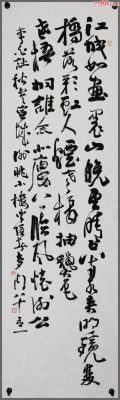 江城如畫裏山晚望晴空兩水夾明鏡雙
橋落彩虹人煙寒橘柚秋色
老梧桐誰念北樓上臨風懷謝公
李白秋登宣城謝朓北樓